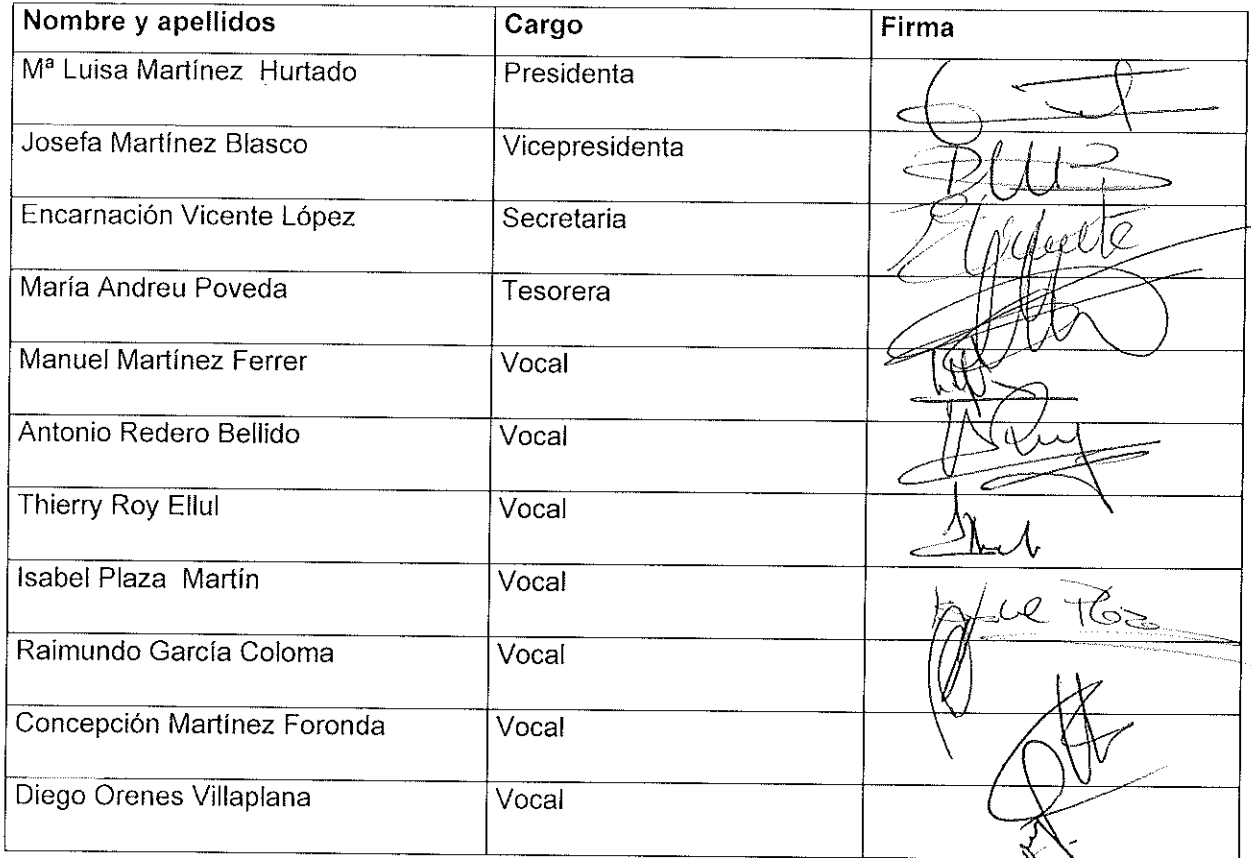 Nombre y apellidos Cargo Firma
Mª Luisa Martínez Hurtado Presidenta
Josefa Martínez Blasco Vicepresidenta
Encarnación Vicente López Secretaria
María Andreu Poveda Tesorera
Manuel Martínez Ferrer Vocal
Antonio Redero Bellido Vocal
Thierry Roy Ellul Vocal
Isabel Plaza Martín Vocal
Raimundo García Coloma Vocal
Concepción Martínez Foronda Vocal
Diego Orenes Villaplana Vocal